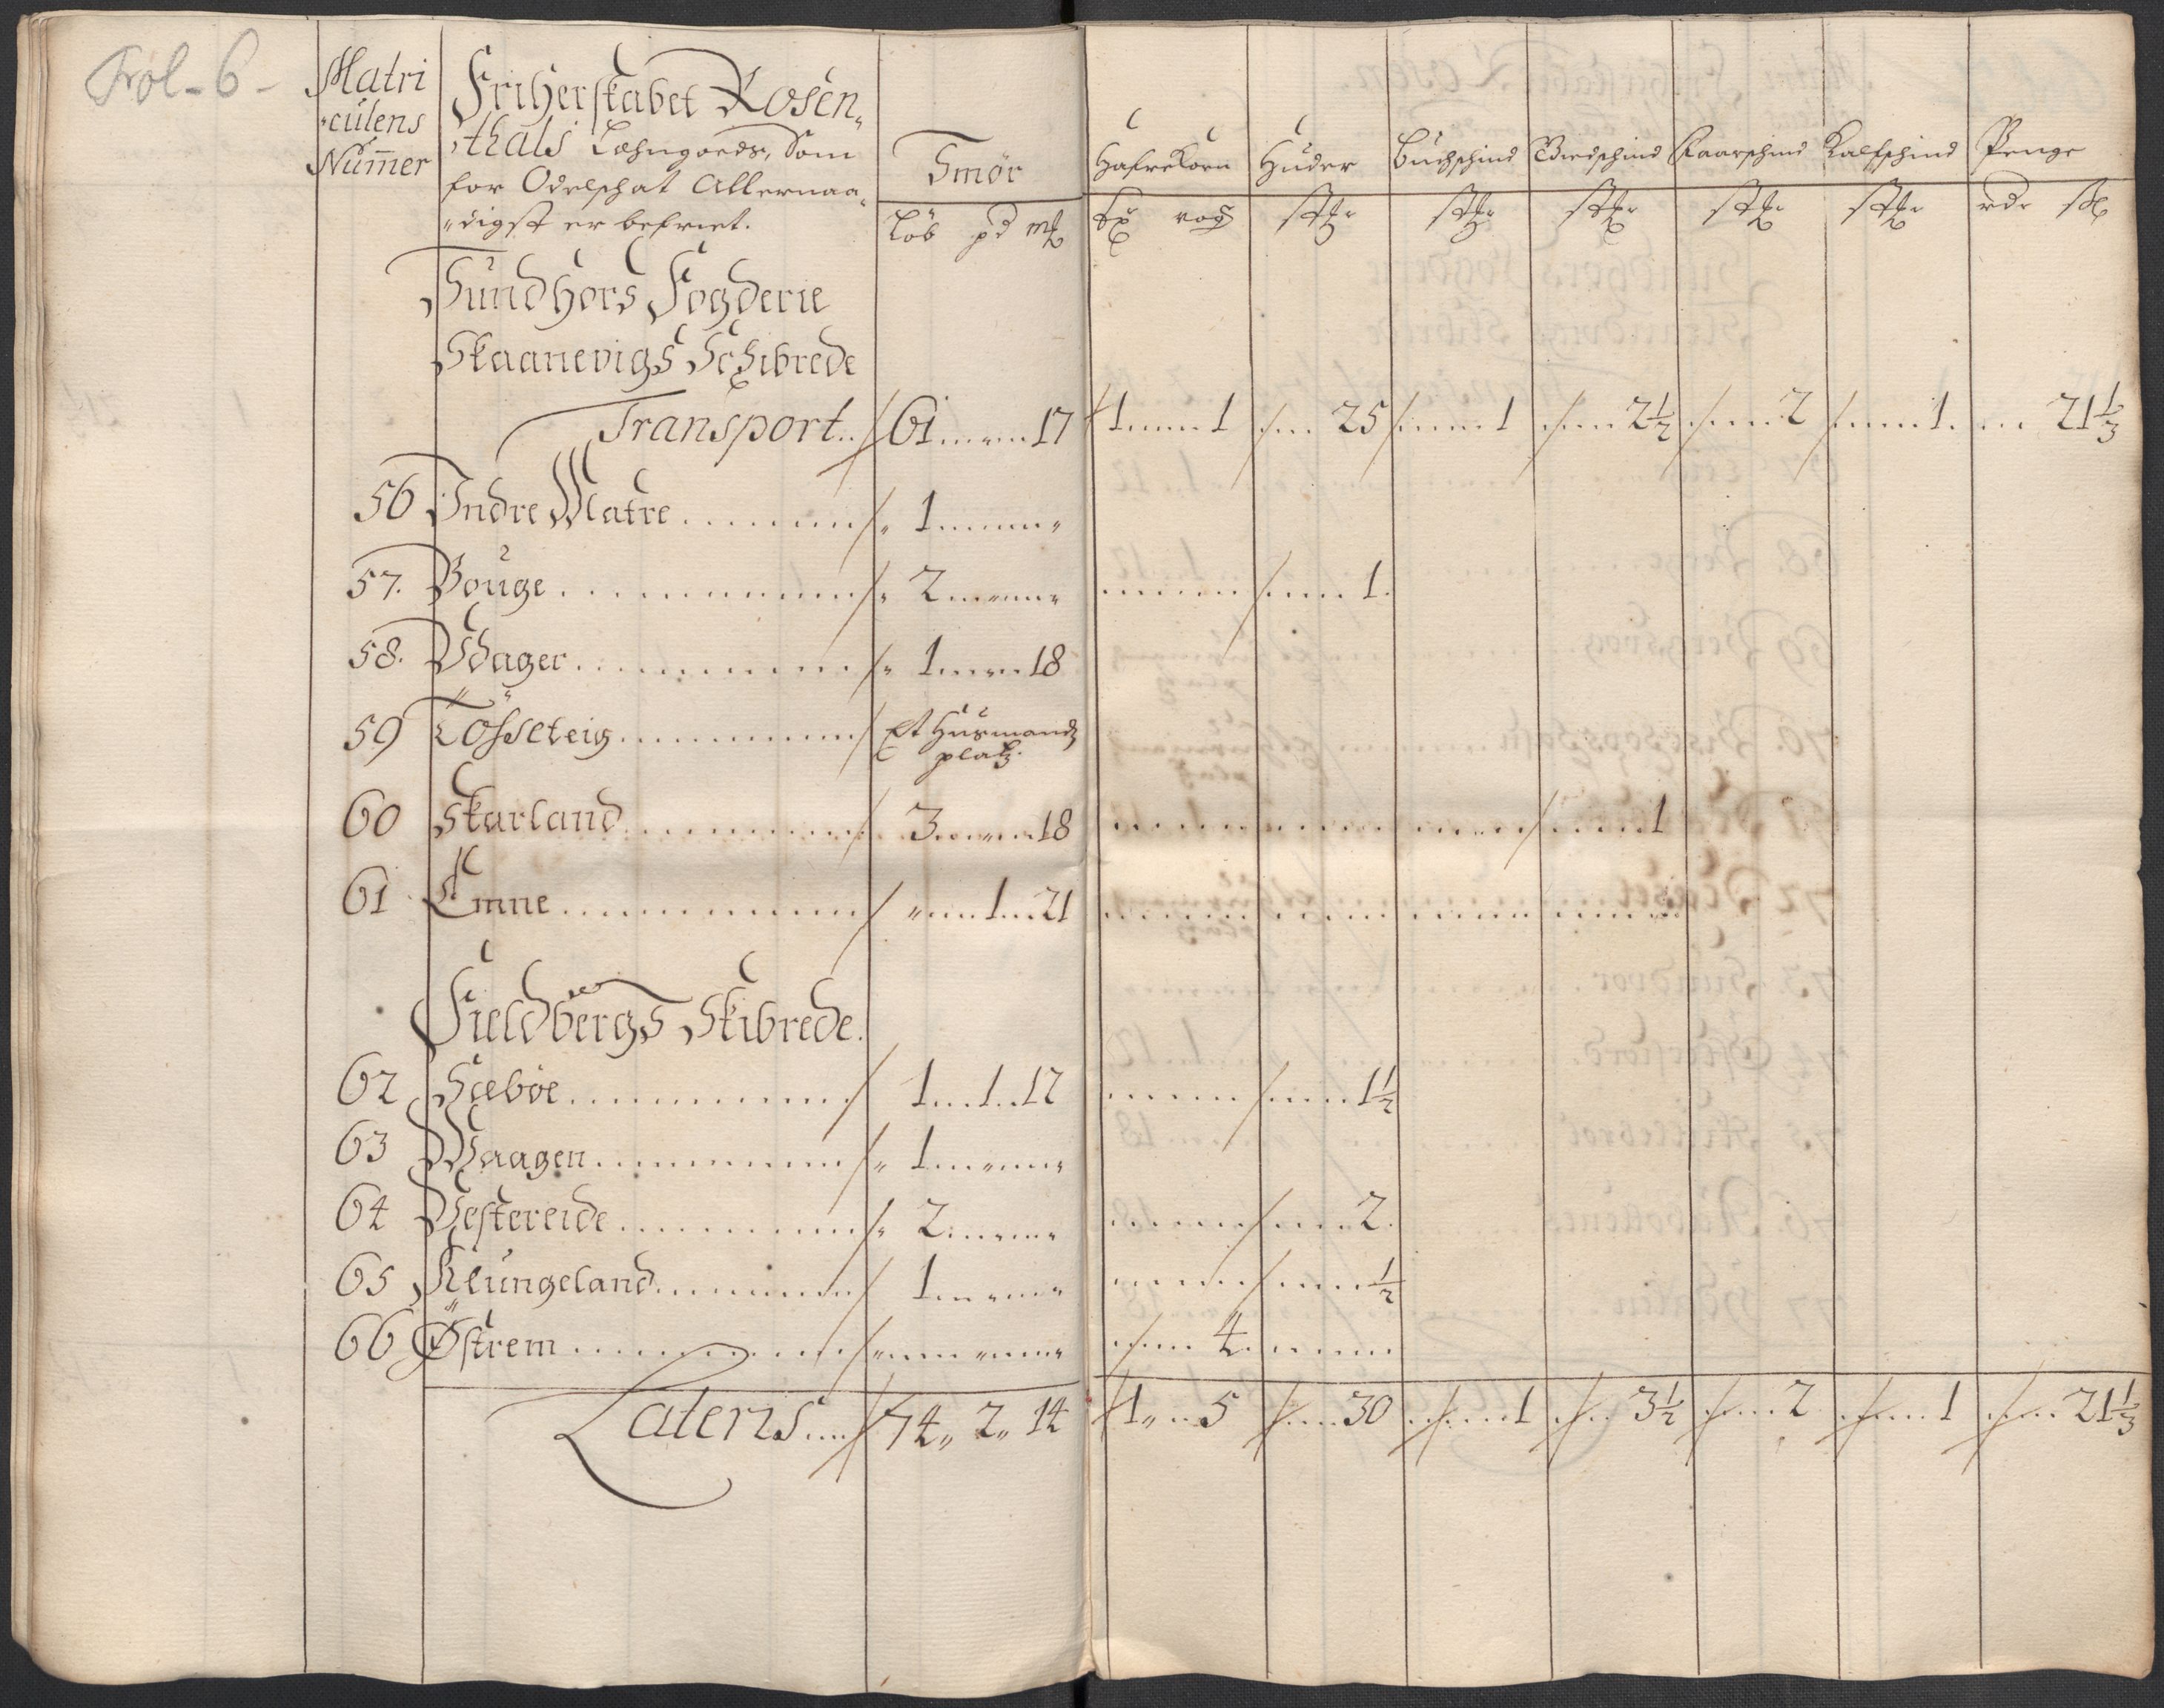 Fol-6-
Matri
-culens
Num̄er
Friherskabet Rosen-
-thals Læhngoeds, Som
for Odelschat Allernaa-
-digst er befriet.
Smör
Löb pd mk
Hafrekorn
vog
Huder
Buchschind
Giedschind
Faarschind
Kalfschind
Penge
rdr
Sundhors Fogderie
Skaanevigs Schibrede
Transport.. 61 ... 17 1 ... 1 25 1 2½ 2 1. 21⅓
56 Indre Matre ....... 1
57. Bouge ....... 2 1.
58. Wager ....... 1 ... 18
59 Tösseteig ....... Et Husmands
platz.
60 Skarland ....... 3 ... 18 1
61 Emne ....... 1 ... 21
Fieldbergs Skibrede.
62 Sæböe ....... 1 ... 1 .. 17 1½
63 Waagen ....... 1
64 Vestereide ....... 2 2.
65 Klungeland ....... 1 ½
66 Østrem ....... 4
Lateris.... 74 „ 2 „ 14 1 „ 5 30 1 3½ 2 1 21⅓